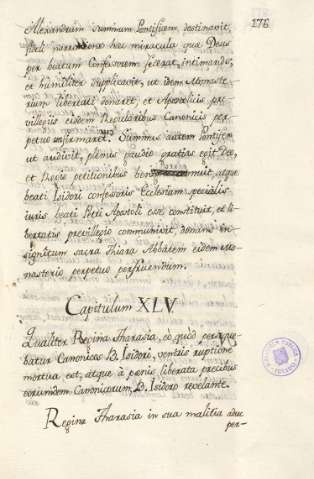 176
Alexandrum summum Pontificem, destinavit,
fideli narratione hac miracula qua Deus
per beatum Confessorem fecerat, intimando;
et humiliter supplicavit, ut idem Monaste-
rium libertati donaret, et Apostolicis pri-
villegiis eisdem Regularibus Canonicis per-
petuo confirmaret. Summus autem Pontifex
ut audivit, plenus gaudio gratias egit Deo,
et Regis petitionibus atque
beati Isidori confessoris Ecclesiam specialis
iuris beati Petri Apostoli esse constituit, et li-
bertatis previllegio communivit, donans in-
signitum sacra thiara Abbatem eidem Mo-
nasterio perpetuo perfruendum.
Capitulum XLV.
Qualiter Regina Tharasia, eo quod pertur-
babat Canonicos D. Isidori, ventris ruptione
mortua est, atque à pœnis liberata precibus
eorumdem Canonicorum D. Isidoro revelante.
Regina Tharasia in sua malitia adeo
per-